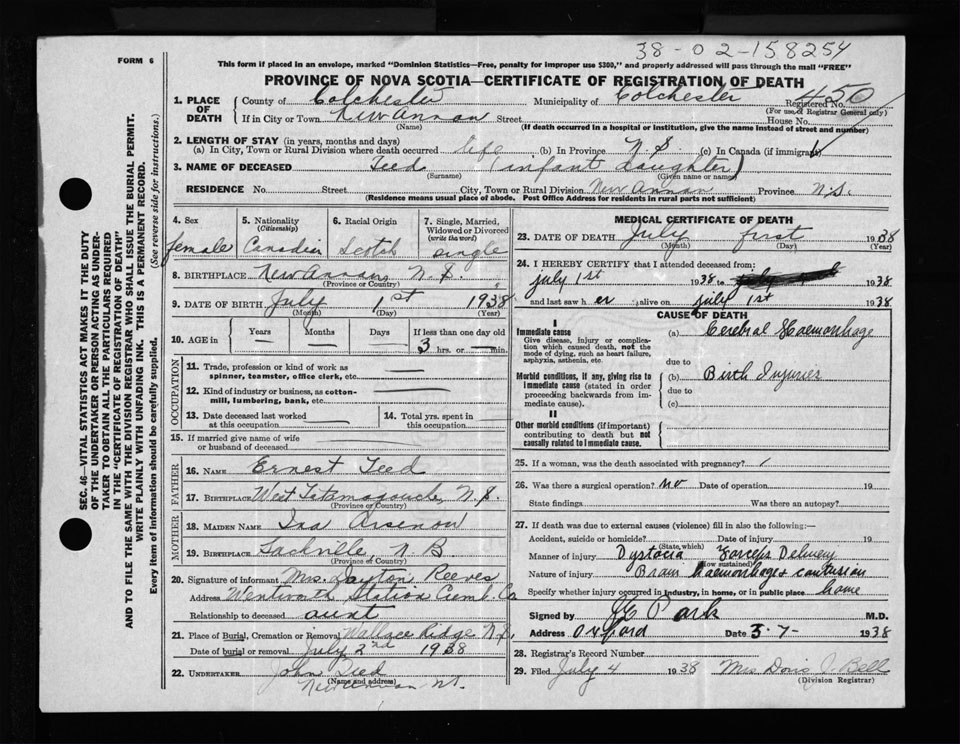 38-02-158254
FORM 6
This form if placed in an envelope, marked "Dominion Statistics—Free, penalty for improper use $300," and properly addressed will pass through the mail "FREE"
PROVINCE OF NOVA SCOTIA—CERTIFICATE OF REGISTRATION OF DEATH
SEC. 46—VITAL STATISTICS ACT MAKES IT THE DUTY
OF THE UNDERTAKER OR PERSON ACTING AS UNDER-
TAKER TO OBTAIN ALL THE PARTICULARS REQUIRED
IN THE "CERTIFICATE OF REGISTRATION OF DEATH"
AND TO FILE THE SAME WITH THE DIVISION REGISTRAR WHO SHALL ISSUE THE BURIAL PERMIT.
WRITE PLAINLY WITH UNFADING INK. THIS IS A PERMANENT RECORD.
Every item of information should be carefully supplied. (See reverse side for instructions.)
1. PLACE OF DEATH
County of Colchester Municipality of Colchester Registered No. 450
(For use of Registrar General only)
If in City or Town New Annan Street House No.
(Name) (If death occurred in a hospital or institution, give the name instead of street and number)
2. LENGTH OF STAY (in years, months and days)
(a) In City, Town or Rural Division where death occurred life (b) In Province N.S (c) In Canada (if immigrant)
3. NAME OF DECEASED Teed (infant daughter)
(Surname) (Given name or names)
RESIDENCE No. Street City, Town or Rural Division New Annan Province N.S.
(Residence means usual place of abode. Post Office Address for residents in rural parts not sufficient)
4. Sex 5. Nationality 6. Racial Origin 7. Single, Married,
(Citizenship) Widowed or Divorced
(write the word)
female Canadian Scotch single
8. BIRTHPLACE New Annan, N.S.
(Province or Country)
9. DATE OF BIRTH July 1st 1938
(Month) (Day) (Year)
10. AGE in Years Months Days If less than one day old
— — — 3 hrs. or — min.
OCCUPATION
11. Trade, profession or kind of work as
spinner, teamster, office clerk, etc. —
12. Kind of industry or business, as cotton-
mill, lumbering, bank, etc. —
13. Date deceased last worked
at this occupation —
14. Total yrs. spent in
this occupation —
15. If married give name of wife
or husband of deceased —
FATHER
16. NAME Ernest Teed
17. BIRTHPLACE West Tatamagouche, N.S.
(Province or Country)
MOTHER
18. MAIDEN NAME Ina Arsenou
19. BIRTHPLACE Sackville, N B
(Province or Country)
20. Signature of informant Mrs. Layton Reeves
Address Wentworth Station Cumb. Co
Relationship to deceased aunt
21. Place of Burial, Cremation or Removal Wallace Ridge N.S.
Date of burial or removal July 2nd 1938
22. UNDERTAKER John Teed
(Name and address)
New Annan N.S.
MEDICAL CERTIFICATE OF DEATH
23. DATE OF DEATH July first 1938
(Month) (Day) (Year)
24. I HEREBY CERTIFY that I attended deceased from:
July 1st 1938 to 1938
and last saw h er alive on July 1st 1938
CAUSE OF DEATH
I
Immediate cause (a) Cerebral Haemorrhage
Give disease, injury or complica-
tion which caused death, not the
mode of dying, such as heart failure,
asphyxia, asthenia, etc.
due to
Morbid conditions, if any, giving rise to (b) Birth Injuries
immediate cause (stated in order due to
proceeding backwards from im-
mediate cause). (c)
II
Other morbid conditions (if important)
contributing to death but not
causally related to immediate cause.
25. If a woman, was the death associated with pregnancy?
26. Was there a surgical operation? no Date of operation 19
State findings Was there an autopsy?
27. If death was due to external causes (violence) fill in also the following:—
Accident, suicide or homicide? Date of injury 19
(State which)
Manner of injury Dystocia Forceps Delivery
(How sustained)
Nature of injury Brain haemorrhage & contusion
Specify whether injury occurred in industry, in home, or in public place home
Signed by Park M.D.
Address Oxford Date 3-7- 1938
28. Registrar's Record Number
29. Filed July 4 1938 Mrs Doris J. Bell
(Division Registrar)